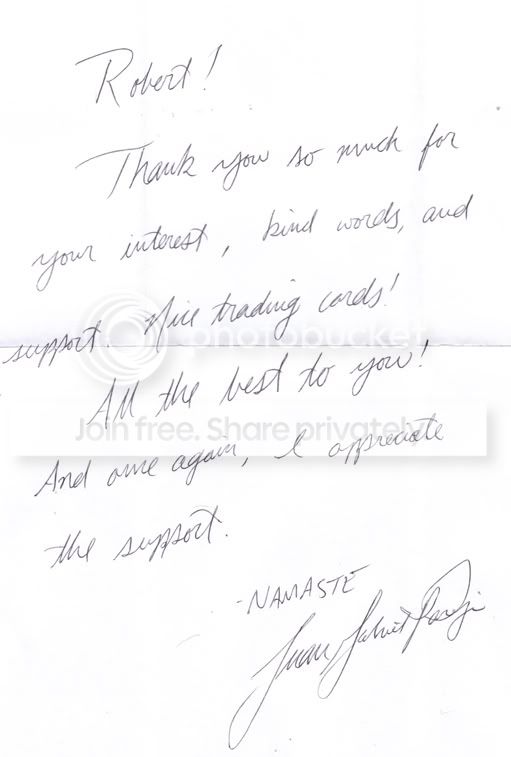 Robert!
Thank you so much for
your interest, kind words, and
support. Nice trading cards!
photobucket
All the best to you!
Join free. Share privately.
And once again, I appreciate
the support.
-NAMASTE
Juan Gabriel Pareja